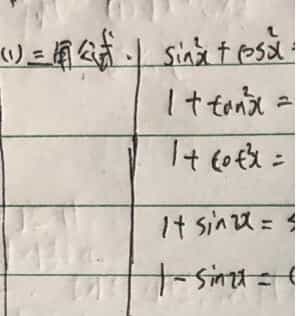 (1) 三角公式. sin²x + cos²x =
1 + tan²x =
1 + cot²x =
1 + sin2x = s
1 - sin2x = (